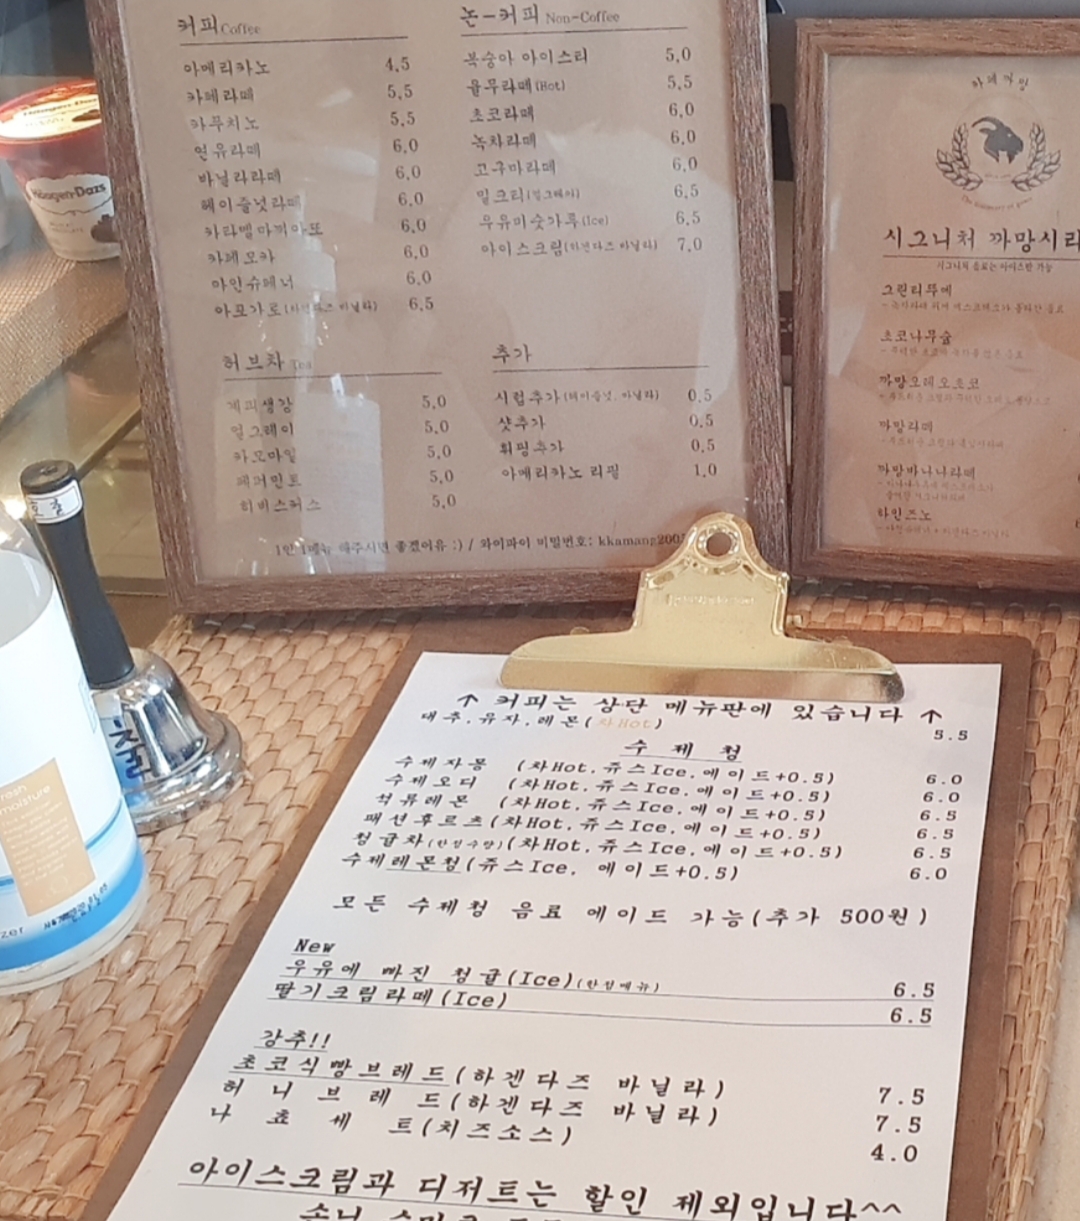 커피 Coffee
아메리카노 4,5
카페라떼 5,5
카푸치노 5,5
연유라떼 6,0
바닐라라떼 6,0
헤이즐넛라떼 6,0
카라멜마끼아또 6,0
카페모카 6,0
아인슈페너 6,0
아포가토(하겐다즈 바닐라) 6,5
논-커피 Non-Coffee
복숭아 아이스티 5,0
율무라떼(Hot) 5,5
초코라떼 6,0
녹차라떼 6,0
고구마라떼 6,0
밀크티(얼그레이) 6,5
우유미숫가루(Ice) 6,5
아이스크림(하겐다즈 바닐라) 7,0
허브차 Tea
계피생강 5,0
얼그레이 5,0
카모마일 5,0
페퍼민트 5,0
히비스커스 5,0
추가
시럽추가(헤이즐넛, 바닐라) 0.5
샷추가 0.5
휘핑추가 0.5
아메리카노 리필 1,0
1인 1메뉴 해주시면 좋겠어유 :) / 와이파이 비밀번호: kkamang200
시그니처 까망시리
시그니처 음료는 아이스만 가능
그린티뚜에
초코나무숲
까망오레오초코
까망라떼
까망바나나라떼
타인즈노
Häagen-Dazs
호출
↑ 커피는 상단 메뉴판에 있습니다 ↑
대추,유자,레몬(차Hot) 5.5
수제청
수제자몽 (차Hot,쥬스Ice,에이드+0.5) 6.0
수제오디 (차Hot,쥬스Ice,에이드+0.5) 6.0
석류레몬 (차Hot,쥬스Ice,에이드+0.5) 6.5
패션후르츠(차Hot,쥬스Ice,에이드+0.5) 6.5
청귤차(한정수량)(차Hot,쥬스Ice,에이드+0.5) 6.5
수제레몬청(쥬스Ice, 에이드+0.5) 6.0
모든 수제청 음료 에이드 가능(추가 500원)
New
우유에 빠진 청귤(Ice)(한정메뉴) 6.5
딸기크림라떼(Ice) 6.5
강추!!
초코식빵브레드(하겐다즈 바닐라) 7.5
허니브레드(하겐다즈 바닐라) 7.5
나쵸세트(치즈소스) 4.0
아이스크림과 디저트는 할인 제외입니다^^
resh
moisture
zer